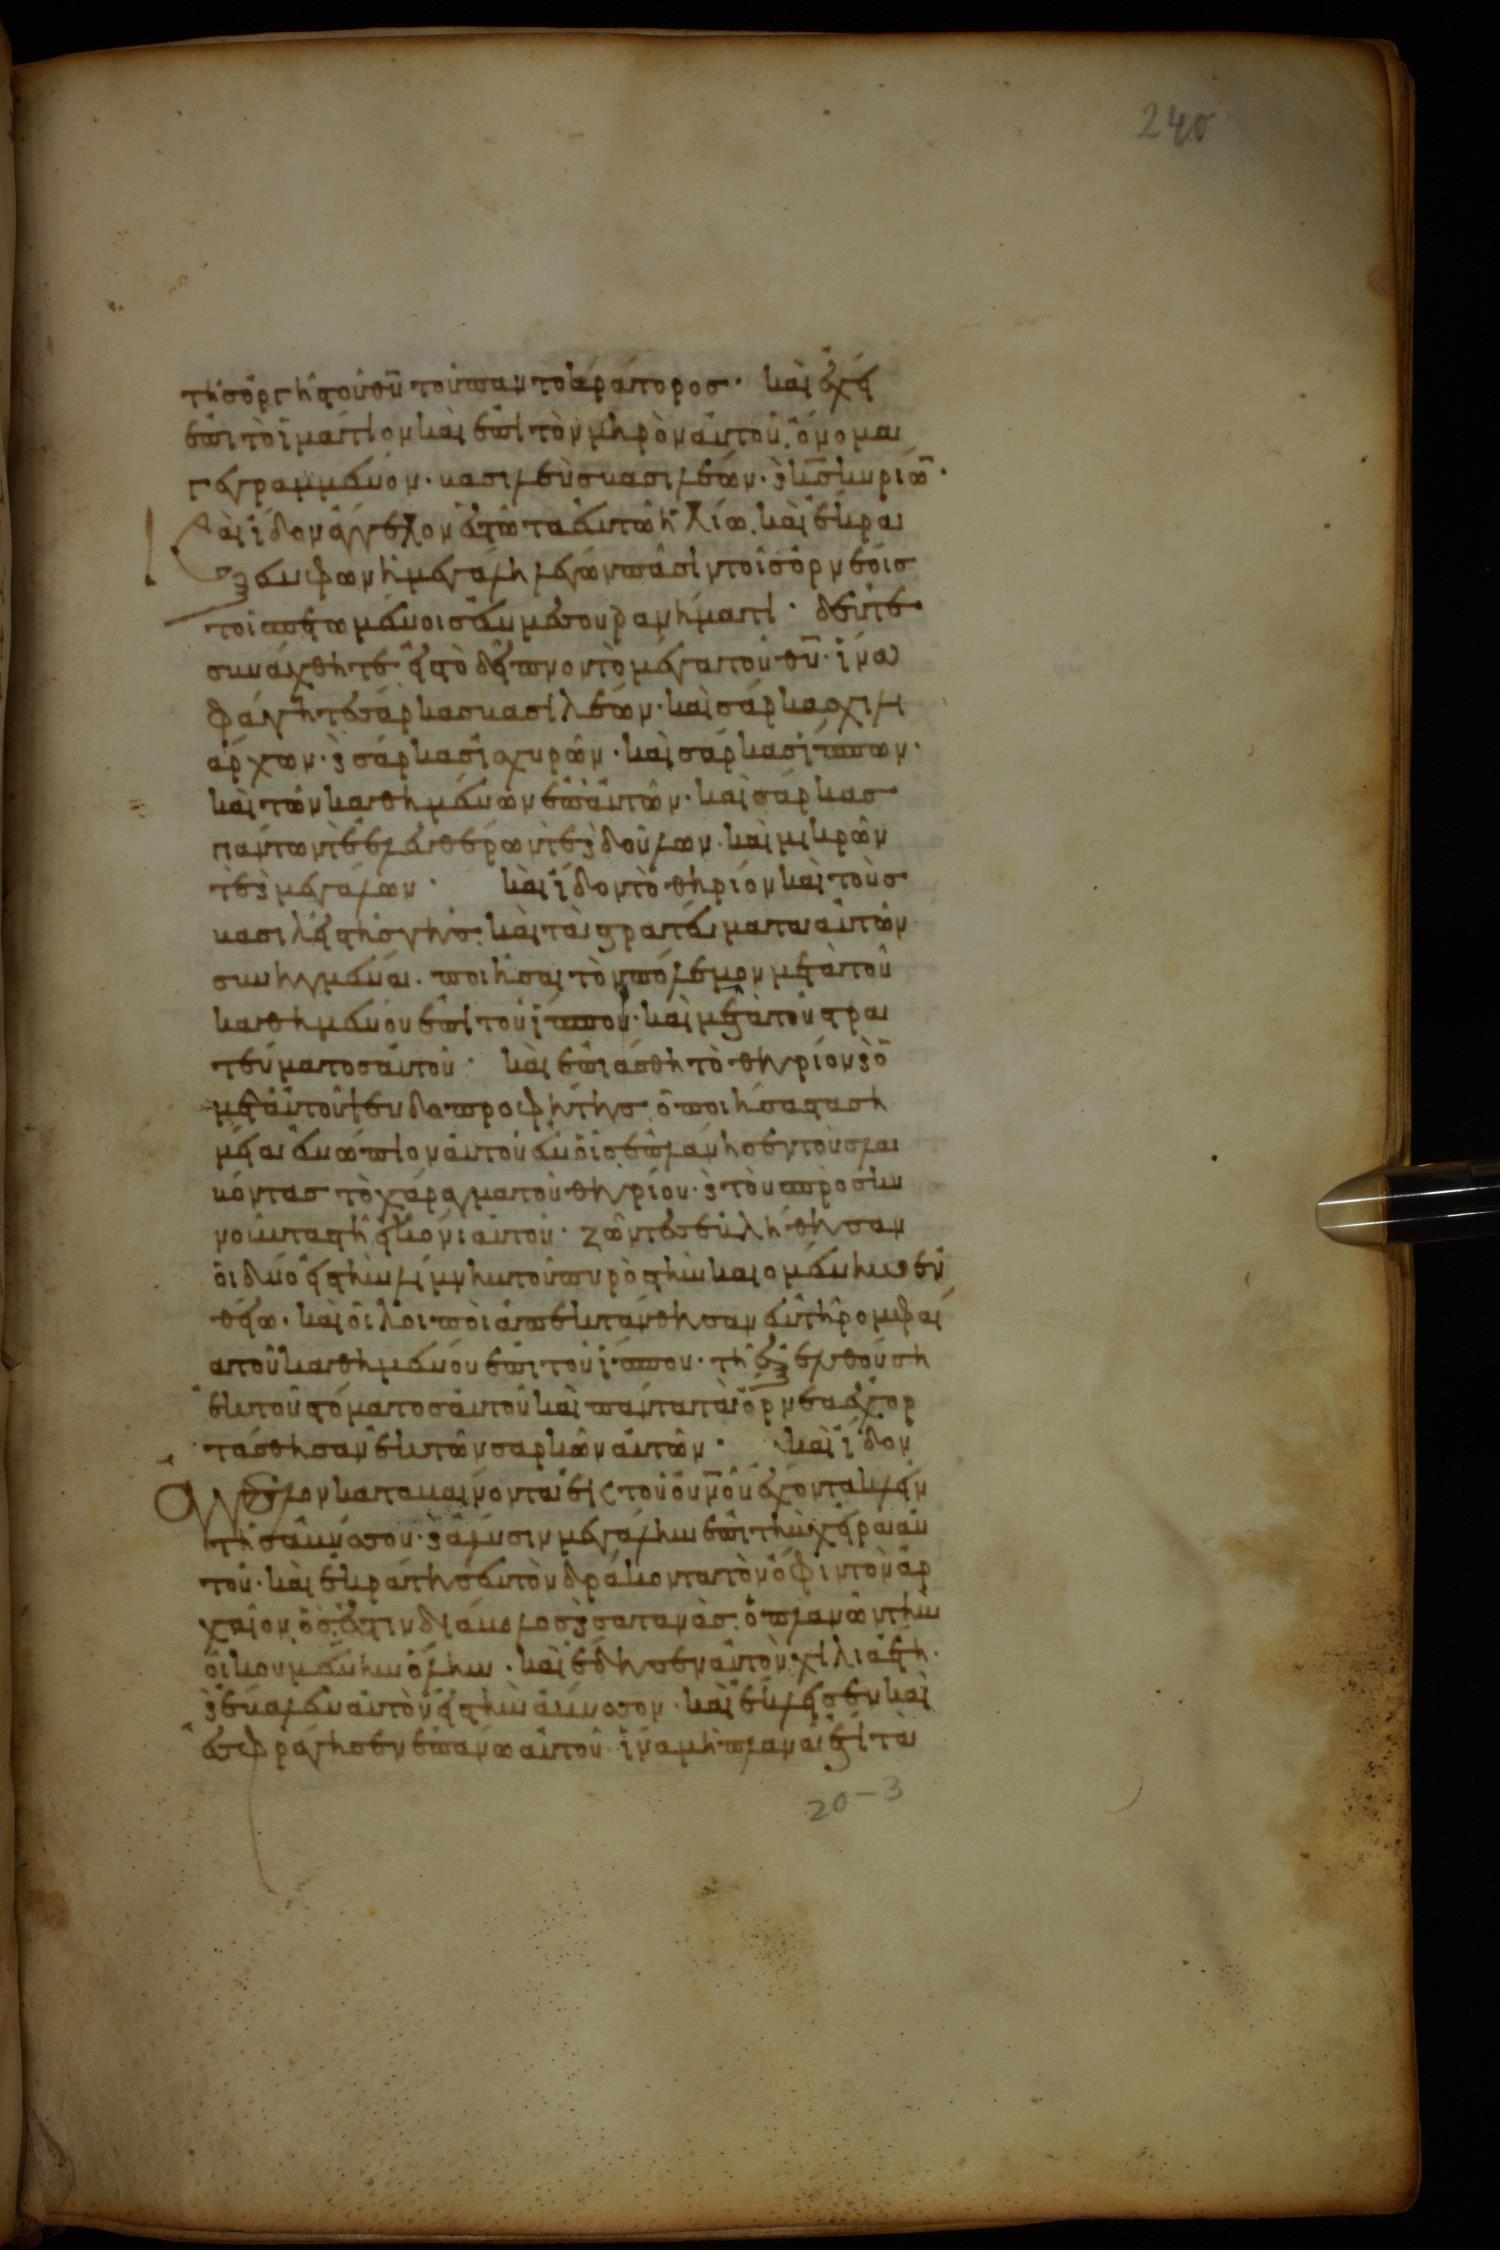 240
τῆς ὀργῆς τοῦ θῦ τοῦ παντοκράτορος· καὶ ἔχει
ἐπὶ τὸ ἱμάτιον καὶ ἐπὶ τὸν μηρὸν αὐτοῦ, ὄνομα
γεγραμμένον· βασιλεὺς βασιλέων· ϗ κς κυριῶ̅·
Καὶ ἴδον ἄγγελον ἑστῶτα ἐν τῶ ἡλίω, καὶ ἔκρα
ξεν φωνῆ μεγάλη λέγων πᾶσιν τοῖς ὀρνέοις
τοῖς πετωμένοις ἐν μεσουρανήματι· δεῦτε
συνάχθητε εἰς τὸ δεῖπνον τὸ μέγα τοῦ θῦ· ἵνα
φάγητε σάρκας βασιλέων· καὶ σάρκας χιλι
άρχων· ϗ σάρκας ἰσχυρῶν· καὶ σάρκας ἵππων·
καὶ τῶν καθημένων ἐπ' αὐτῶν· καὶ σάρκας
πάντων τὲ ἐλευθέρων τὲ ϗ δούλων· καὶ μικρῶν
τὲ ϗ μεγάλων· καὶ ἴδον τὸ θηρίον καὶ τοὺς
βασιλεῖς τῆς γῆς· καὶ τὰ στρατεύματα αὐτῶν
συνηγμένα· ποιῆσαι τὸν πόλεμον μετὰ τοῦ
καθημένου ἐπὶ τοῦ ἵππου· καὶ μετὰ τοῦ στρα
τεύματος αὐτοῦ· καὶ ἐπιάσθη τὸ θηρίον ϗ ὁ
μετ' αὐτοῦ ψευδοπροφήτης ὁ ποιήσας τὰ ση
μεῖα ἐνώπιον αὐτοῦ ἐν οἷς ἐπλάνησεν τοὺς λα
βόντας τὸ χάραγμα τοῦ θηρίου· ϗ τοὺς προσκυ
νοῦντας τῆ εἰκόνι αὐτοῦ· ζῶντες ἐβλήθησαν
οἱ δύο εἰς τὴν λίμνην τοῦ πυρὸς τὴν καιομένην ἐν
θείω· καὶ οἱ λοιποὶ ἀπεκτάνθησαν ἐν τῆ ρομφαί
α τοῦ καθημένου ἐπὶ τοῦ ἵππου· τῆ ἐξελθούση
ἐκ τοῦ στόματος αὐτοῦ καὶ πάντα τὰ ὄρνεα ἐχορ
τάσθησαν ἐκ τῶν σαρκῶν αὐτῶν· καὶ ἴδον
ἄγγελον καταβαίνοντα ἐκ τοῦ οὐν̅οῦ ἔχοντα κλεῖν
τῆς ἀβύσσου· ϗ ἅλυσιν μεγάλην ἐπὶ τὴν χεῖρα αὐ
τοῦ· καὶ ἐκράτησε τὸν δράκοντα τὸν ὄφιν τὸν ἀρ
χαῖον, ὅς ἐστιν διάβολος ϗ σατανᾶς ὁ πλανῶν τὴν
οἰκουμένην ὅλην· καὶ ἔδησεν αὐτὸν χίλια ἔτη·
ϗ ἔβαλεν αὐτὸν εἰς τὴν ἄβυσσον· καὶ ἔκλεισεν καὶ
ἐσφράγισεν ἐπάνω αὐτοῦ ἵνα μὴ πλανᾶ ἔτι τὰ
20-3